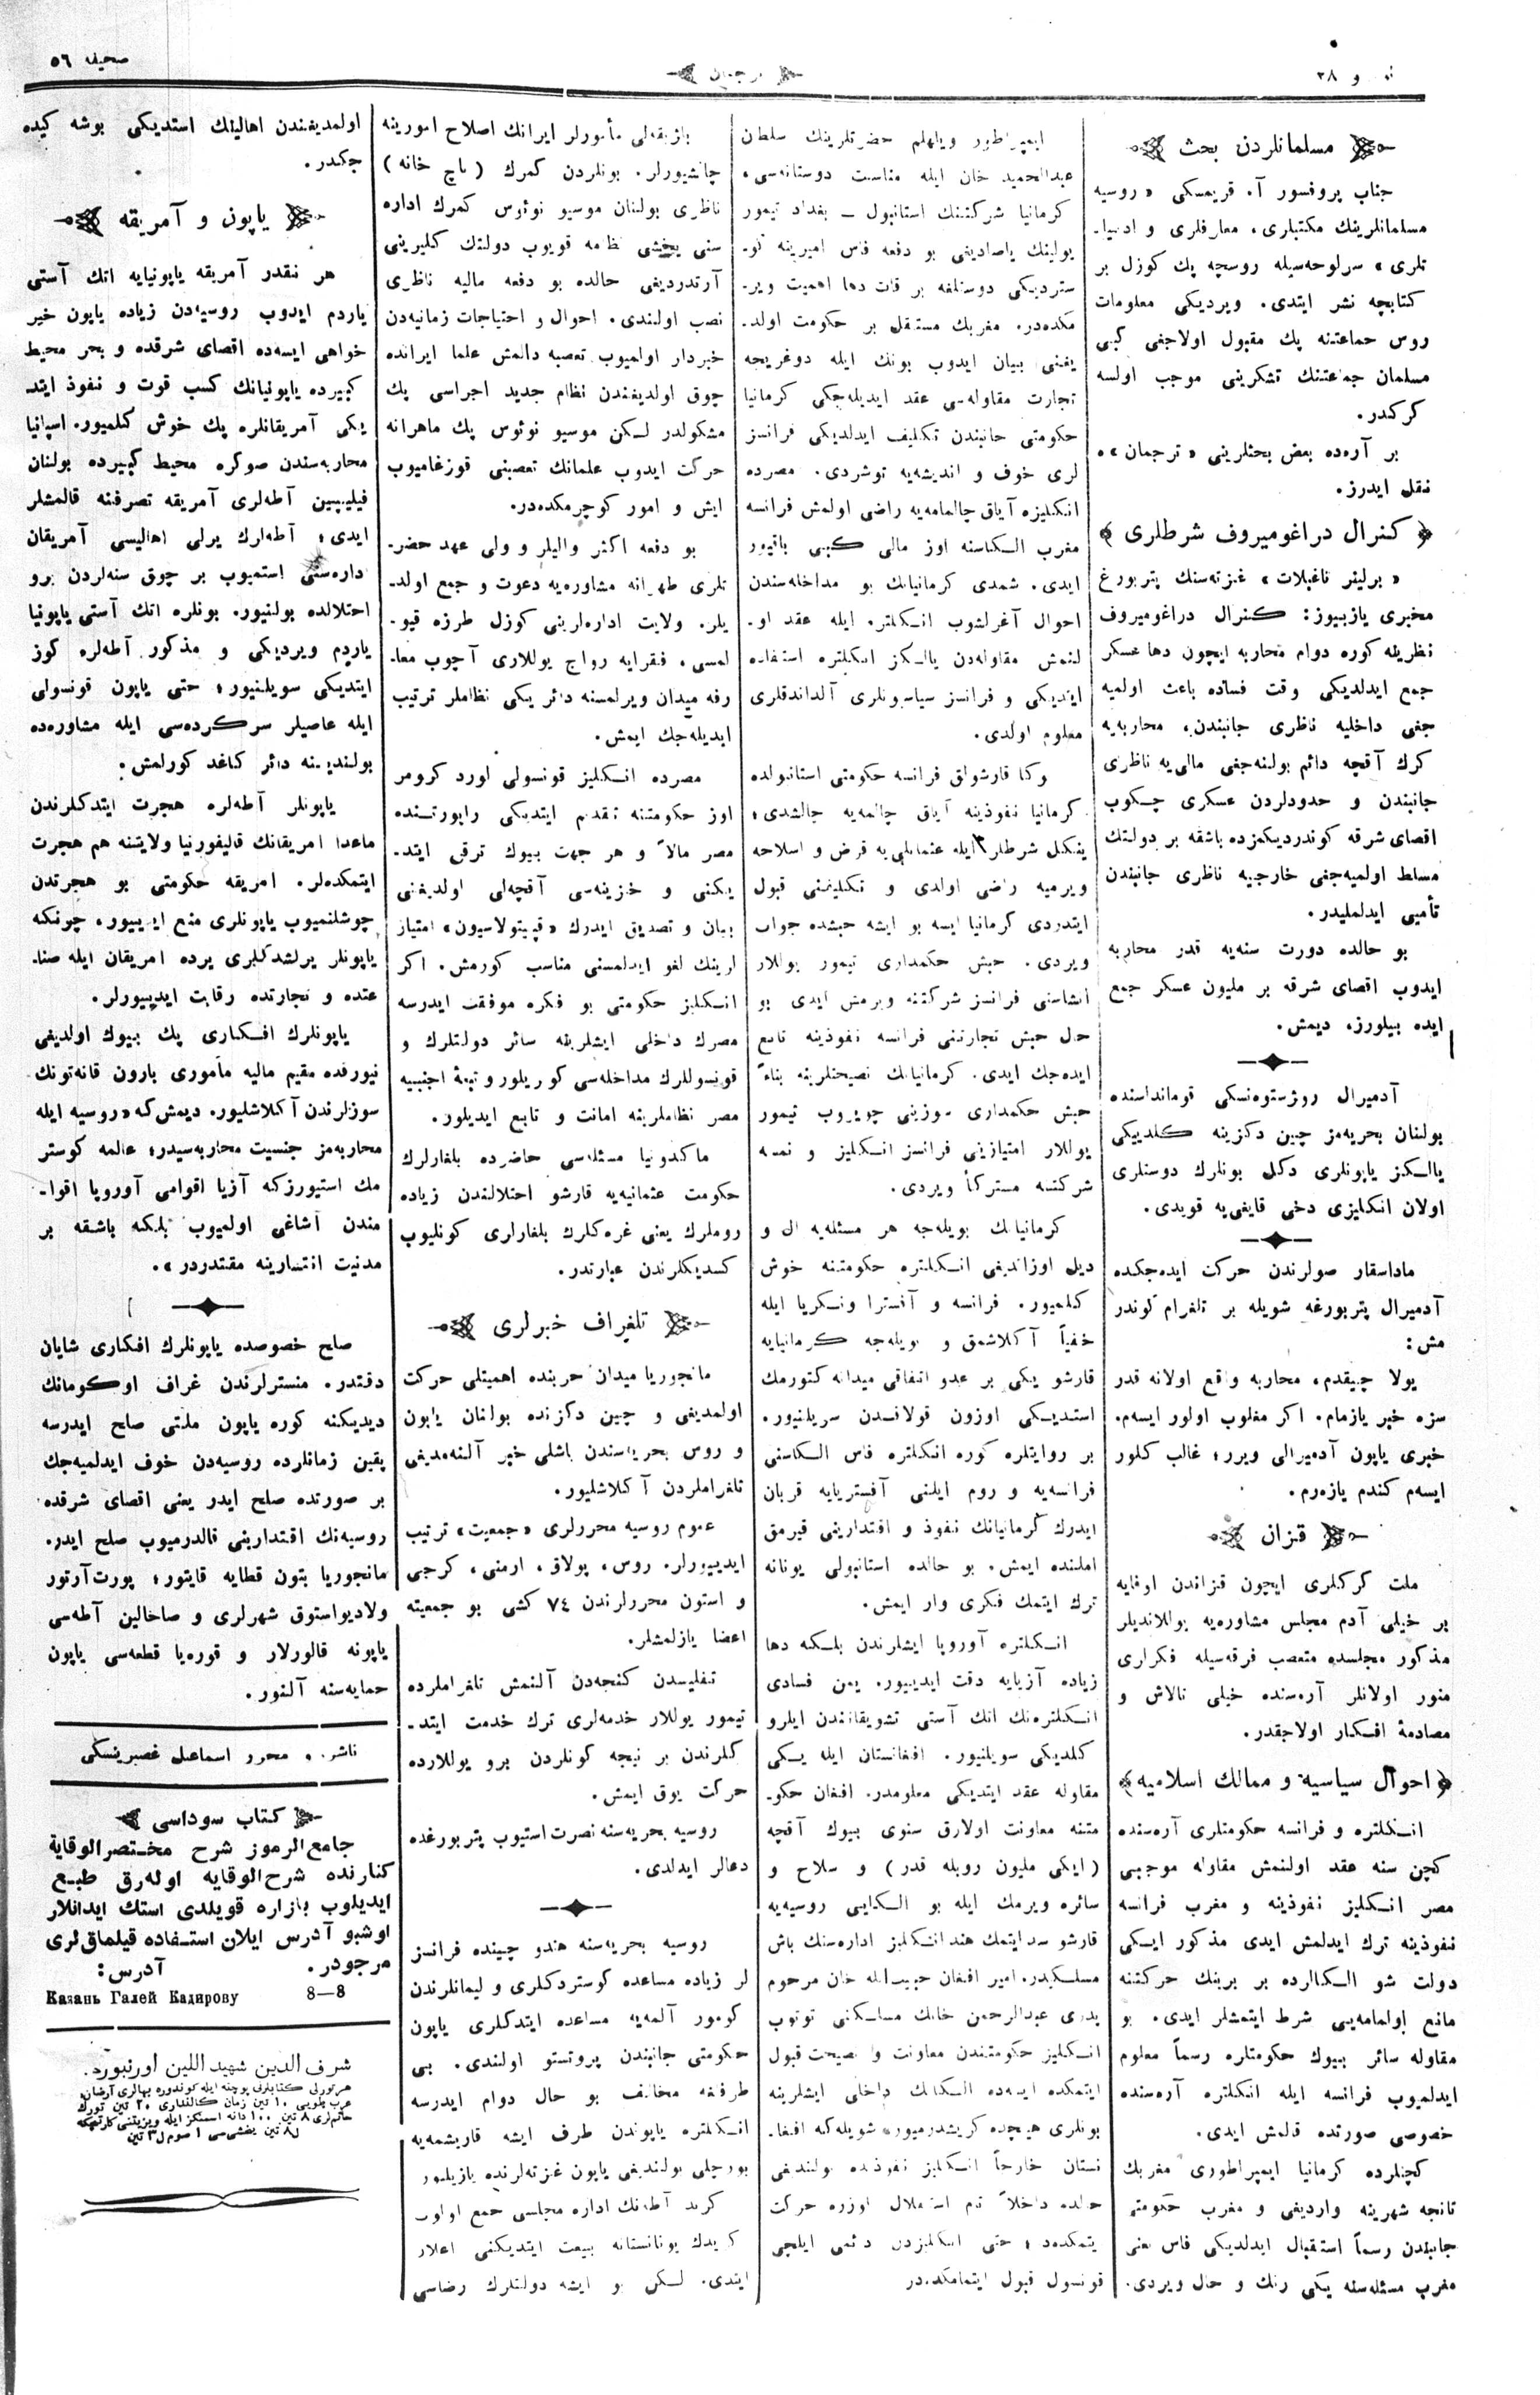 صحیفه ٥٦
ترجمان
و ٢٨
مسلمانلردن بحث
جناب پروفسور آ. قریمسكی «روسیه
مسلمانلرینك مكتبلری، معارفلری و ادبیا-
تلری» سرلوحه‌سیله روسجه پك كوزل بر
كتابچه نشر ایتدی. ویردیكی معلومات
روس جماعتنه پك مقبول اولاجغی كبی
مسلمان جماعتنك تشكرینی موجب اولسه
كركدر.
بر آره‌ده بعض بحثلرینی «ترجمان»ه
نقل ایدرز.
﴿ كنرال دراغومیروف شرطلری ﴾
«برلینر تاغبلات» غزته‌سنك پتربورغ
مخبری یازییوز: كنرال دراغومیروف
نظریله كوره دوام محاربه ایچون دها عسكر
جمع ایدلدیكی وقت فساده باعث اولمیه
جغی داخلیه ناظری جانبندن، محاربه‌یه
كرك آقچه دائم بولنه‌جغی مالی‌یه ناظری
جانبندن و حدودلردن عسكری چكوب
اقصای شرقه كوندردیكمزده باشقه بر دولتك
مسلط اولمیه‌جغی خارجیه ناظری جانبندن
تأمیی ایدلملیدر.
بو حالده دورت سنه‌یه قدر محاربه
ایدوب اقصای شرقه بر ملیون عسكر جمع
ایده بیلورز، دیمش.
آدمیرال روژستوه‌نسكی قومانداسنده
بولنان بحریه‌مز چین دكزینه كلدییكی
یالكز یاپونلری دكل بونلرك دوستلری
اولان انكلیزی دخی قایغی‌یه قویدی.
ماداسقار صولرندن حركت ایده‌جكده
آدمیرال پتربورغه شویله بر تلغرام كوندر
مش:
یولا چیقدم، محاربه واقع اولانه قدر
سزه خبر یازمام. اكر مغلوب اولور ایسه‌م.
خبری یاپون آدمیرالی ویرر؛ غالب كلور
ایسه‌م كندم یازه‌رم.
قزان
ملت كركلری ایچون قزاندن اوفایه
بر خیلی آدم مجلس مشاوره‌یه یوللاندیلر
مذكور مجلسده متعصب فرقه‌سیله فكراری
منور اولانلر آره‌سنده خیلی تالاش و
مصادمهٔ افكار اولاجقدر.
﴿ احوال سیاسیه و ممالك اسلامیه ﴾
انكلتره و فرانسه حكومتلری آره‌سنده
كچن سنه عقد اولنمش مقاوله موجبی
مصر انكلیز نفوذینه و مغرب فرانسه
نفوذینه ترك ایدلمش ایدی مذكور ایكی
دولت شو الكالارده بر برینك حركتنه
مانع اولمامه‌یی شرط ایتمشلر ایدی. بو
مقاوله سائر بیوك حكومتلره رسماً معلوم
ایدلمیوب فرانسه ایله انكلتره آره‌سنده
خصوصی صورتده قالمش ایدی.
كچنلرده كرمانیا ایمپراطوری مغربك
تانجه شهرینه واردیغی و مغرب حكومتی
جانبندن رسماً استقبال ایدلدیكی فاس یعنی
مغرب مسئله‌سنه یكی رنك و حال ویردی.
ایمپراطور ویلهلم حضرتلرینك سلطان
عبدالحمید خان ایله مناسبت دوستانه‌سی،
كرمانیا شركتنك استانبول — بغداد تیمور
یولینك یاصادیغی بو دفعه فاس امیرینه كو-
ستردیكی دوستلغه بر قات دها اهمیت ویر-
مكده‌در. مغربك مستقل بر حكومت اولد-
یغنی بیان ایدوب بونك ایله دوغریجه
تجارت مقاوله‌سی عقد ایدیله‌جكی كرمانیا
حكومتی جانبندن تكلیف ایدلدیكی فرانسز
لری خوف و اندیشه‌یه توشردی. مصرده
انكلیزه آیاق چالمامه‌یه راضی اولمش فرانسه
مغرب الكاسنه اوز مالی كبی باقیور
ایدی. شمدی كرمانیانك بو مداخله‌سندن
احوال آغرلشوب انكلتره ایله عقد او-
لنمش مقاوله‌دن یالكز انكلتره استفاده
ایتدیكی و فرانسز سیاسیونلری آلداندقلری
معلوم اولدی.
وكا قارشولق فرانسه حكومتی استانبولده
كرمانیا نفوذینه آیاق چالمه‌یه جالشدی؛
ینكل شرطلر ایله عثمانلی‌یه قرض و اسلاحه
ویرمیه راضی اولدی و تكلیفنی قبول
ایتدردی كرمانیا ایسه بو ایشه حبشده جواب
ویردی. حبش حكمداری تیمور یوللار
انشاسنی فرانسز شركتنه ویرمش ایدی بو
حال حبش تجارتنی فرانسه نفوذینه تابع
ایده‌جك ایدی. كرمانیانك نصیحتلرینه بناءً
حبش حكمداری سوزینی چویروب تیمور
یوللار امتیازینی فرانسز انكلیز و نمسه
شركتنه مشتركاً ویردی.
كرمانیانك بویله‌جه هر مسئله‌یه ال و
دیل اوزاندیغی انكلتره حكومتنه خوش
كلمیور. فرانسه و آفسترا ونكریا ایله
خفیاً آكلاشمق و بویله‌جه كرمانیایه
قارشو یكی بر عدو اتفاقی میدانه كتورمك
استدیكی اوزون قولاقدن سویلنیور.
بر روایتلره كوره انكلتره فاس الكاسنی
فرانسه‌یه و روم ایلنی آفستریایه قربان
ایدرك كرمانیانك نفوذ و اقتدارینی قیرمق
املنده ایمش. بو حالده استانبولی یونانه
ترك ایتمك فكری وار ایمش.
انكلتره آوروپا ایشلرندن بلكه دها
زیاده آزیایه دقت ایدییور. یمن فسادی
انكلتره‌نك انك آستی تشویقاتندن ایلرو
كلدیكی سویلنیور. افغانستان ایله یكی
مقاوله عقد ایتدیكی معلومدر. افغان حكو-
متنه معاونت اولارق سنوی بیوك آقچه
(ایكی ملیون روبله قدر) و سلاح و
سائره ویرمك ایله بو الكایی روسیه‌یه
قارشو سد ایتمك هند انكلیز اداره‌سنك باش
مسلكیدر. امیر افغان حبیب‌الله خان مرحوم
پدری عبدالرحمن خانك مسلكنی توتوب
انكلیز حكومتندن معاونت و نصیحت قبول
ایتمكده ایسه‌ده الكانك داخلی ایشلرینه
بونلری هیچده كریشدرمیور، شویله‌كه افغا-
نستان خارجاً انكلیز نفوذنده بولندیغی
حالده داخلاً تام استقلال اوزره حركت
یتمكده‌در؛ حتی انكلیزدن دائمی ایلچی
قونسول قبول ایتمامكده‌در
مأمورلر ایرانك اصلاح امورینه
چالشیورلر. بونلردن كمرك (باج خانه)
ناظری بولنان موسیو نوئوس كمرك اداره
سنی یخشی نظامه قویوب دولتك كلیرینی
آرتدردیغی حالده بو دفعه مالیه ناظری
نصب اولندی. احوال و احتیاجات زمانیه‌دن
خبردار اولمیوب تعصبه دالمش علما ایرانده
چوق اولدیغندن نظام جدید اجراسی پك
مشكولدر لكن موسیو نوئوس پك ماهرانه
حركت ایدوب علمانك تعصبنی قوزغامیوب
ایش و امور كوچرمكده‌در.
بو دفعه اكثر والیلر و ولی عهد حضر-
تلری طهرانه مشاوره‌یه دعوت و جمع اولد-
یلر. ولایت اداره‌لرینی كوزل طرزه قیو-
لمسی، فقرایه رواج یوللاری آچوب معا-
رفه میدان ویرلمسنه دائر یكی نظاملر ترتیب
ایدیله‌جك ایمش.
مصرده انكلیز قونسولی لورد كرومر
اوز حكومتنه تقدیم ایتدیكی راپورتنده
مصر مالاً و هر جهت بیوك ترقی ایتد-
یكنی و خزینه‌سی آقچه‌لی اولدیغنی
بیان و تصدیق ایدرك «قپیتولاسیون» امتیاز
لرینك لغو ایدلمسنی مناسب كورمش. اكر
انكلیز حكومتی بو فكره موفقت ایدرسه
مصرك داخلی ایشلرینه سائر دولتلرك و
قونسوللرك مداخله‌سی كوریلور و تبعهٔ اجنبیه
مصر نظاملرینه امانت و تابع ایدیلور.
ماكدونیا مسئله‌سی حاضرده بلغارلرك
حكومت عثمانیه‌یه قارشو احتلالندن زیاده
روملرك یعنی غره‌كلرك بلغارلری كونلیوب
كسدیكلرندن عبارتدر.
تلغراف خبرلری
مانجوریا میدان حربنده اهمیتلی حركت
اولمدیغی و چین دكزنده بولنان یاپون
و روس بحریه‌سندن باشلی خبر آلنه‌مدیغی
تلغراملردن آكلاشلیور.
عموم روسیه محررلری «جمعیت» ترتیب
ایدییورلر. روس، پولاق، ارمنی، كرجی
و استون محررلرندن ٧٤ كشی بو جمعیته
اعضا یازلمشلر.
تفلیسدن كنجه‌دن آلنمش تلغراملرده
تیمور یوللار خدمه‌لری ترك خدمت ایتد-
كلرندن بر نیجه كونلردن برو یوللارده
حركت یوق ایمش.
روسیه بحریه‌سنه نصرت استیوب پتربورغده
دعالر ایدلدی.
روسیه بحریه‌سنه هندو چینده فرانسز
لر زیاده مساعده كوستردكلری و لیمانلرندن
كومور آلمه‌یه مساعده ایتدكلری یاپون
حكومتی جانبندن پروتستو اولندی. بی
طرفلغه مخالف بو حال دوام ایدرسه
انكلتره یاپوندن طرف ایشه قاریشمه‌یه
بورجلی بولندیغی یاپون غزته‌لرنده یازیلیور
كرید آطه‌نك اداره مجلسی جمع اولوب
كریدك یونانستانه بیعت ایتدیكنی اعلان
ایتدی. لكن بو ایشه دولتلرك رضاسی
اولمدیغندن اهالینك استدیكی بوشه كیده
جكدر.
یاپون و آمریقه
هر نقدر آمریقه یاپونیایه انك آستی
یاردم ایدوب روسیه‌دن زیاده یاپون خیر
خواهی ایسه‌ده اقصای شرقده و بحر محیط
كبیرده یاپونیانك كسب قوت و نفوذ ایتد-
یكی آمریقانلره پك خوش كلمیور. اسپانیا
محاربه‌سندن صوكره محیط كبیرده بولنان
فیلیپین آطه‌لری آمریقه تصرفنه قالمشلر
ایدی؛ آطه‌لرك یرلی اهالیسی آمریقان
اداره‌سنی استمیوب بر چوق سنه‌لردن برو
احتلالده بولنیور. بونلره انك آستی یاپونیا
یاردم ویردیكی و مذكور آطه‌لره كوز
ایتدیكی سویلنیور؛ حتی یاپون قونسولی
ایله عاصیلر سركرده‌سی ایله مشاوره‌ده
بولندیغنه دائر كاغد كورلمش.
یاپونلر آطه‌لره هجرت ایتدكلرندن
ماعدا امریقانك قالیفورنیا ولایتنه هم هجرت
ایتمكده‌لر. امریقه حكومتی بو هجرتدن
خوشلنمیوب یاپونلری منع ایدییور، چونكه
یاپونلر یرلشدكلری یرده امریقان ایله صنا-
عتده و تجارتده رقابت ایدییورلر.
یاپونلرك افكاری پك بیوك اولدیغی
نیورقده مقیم مالیه مأموری بارون قانه‌تونك
سوزلرندن آكلاشلیور. دیمش كه «روسیه ایله
محاربه‌مز جنسیت محاربه‌سیدر؛ عالمه كوستر
مك استیورزكه آزیا اقوامی آوروپا اقوا-
مندن آشاغی اولمیوب بلكه باشقه بر
مدنیت انتشارینه مقتدردر».
صلح خصوصده یاپونلرك افكاری شایان
دقتدر. منسترلرندن غراف اوكومانك
دیدیكنه كوره یاپون ملتی صلح ایدرسه
یقین زمانلرده روسیه‌دن خوف ایدلمیه‌جك
بر صورتده صلح ایدر یعنی اقصای شرقده
روسیه‌نك اقتدارینی قالدرمیوب صلح ایدر.
مانجوریا بتون قطایه قایتور؛ پورت‌آرتور
ولادیواستوق شهرلری و صاخالین آطه‌سی
یاپونه قالورلار و قوره‌یا قطعه‌سی یاپون
حمایه‌سنه آلنور.
ناشر و محرر اسماعیل غصبرینسكی
كتاب سوداسی
جامع‌الرموز شرح مختصرالوقایة
كنارنده شرح‌الوقایه اوله‌رق طبع
ایدیلوب بازاره قویلدی استك ایدانلار
اوشبو آدرس ایلان استفاده قیلماق‌لری
مرجودر. آدرس:
Казань Галей Кадирову 8—8
شرف الدین شهید اللین اورنبورد.
هرتورلی كتابلرنی پوچته ایله كوندوره بهالری آرضان،